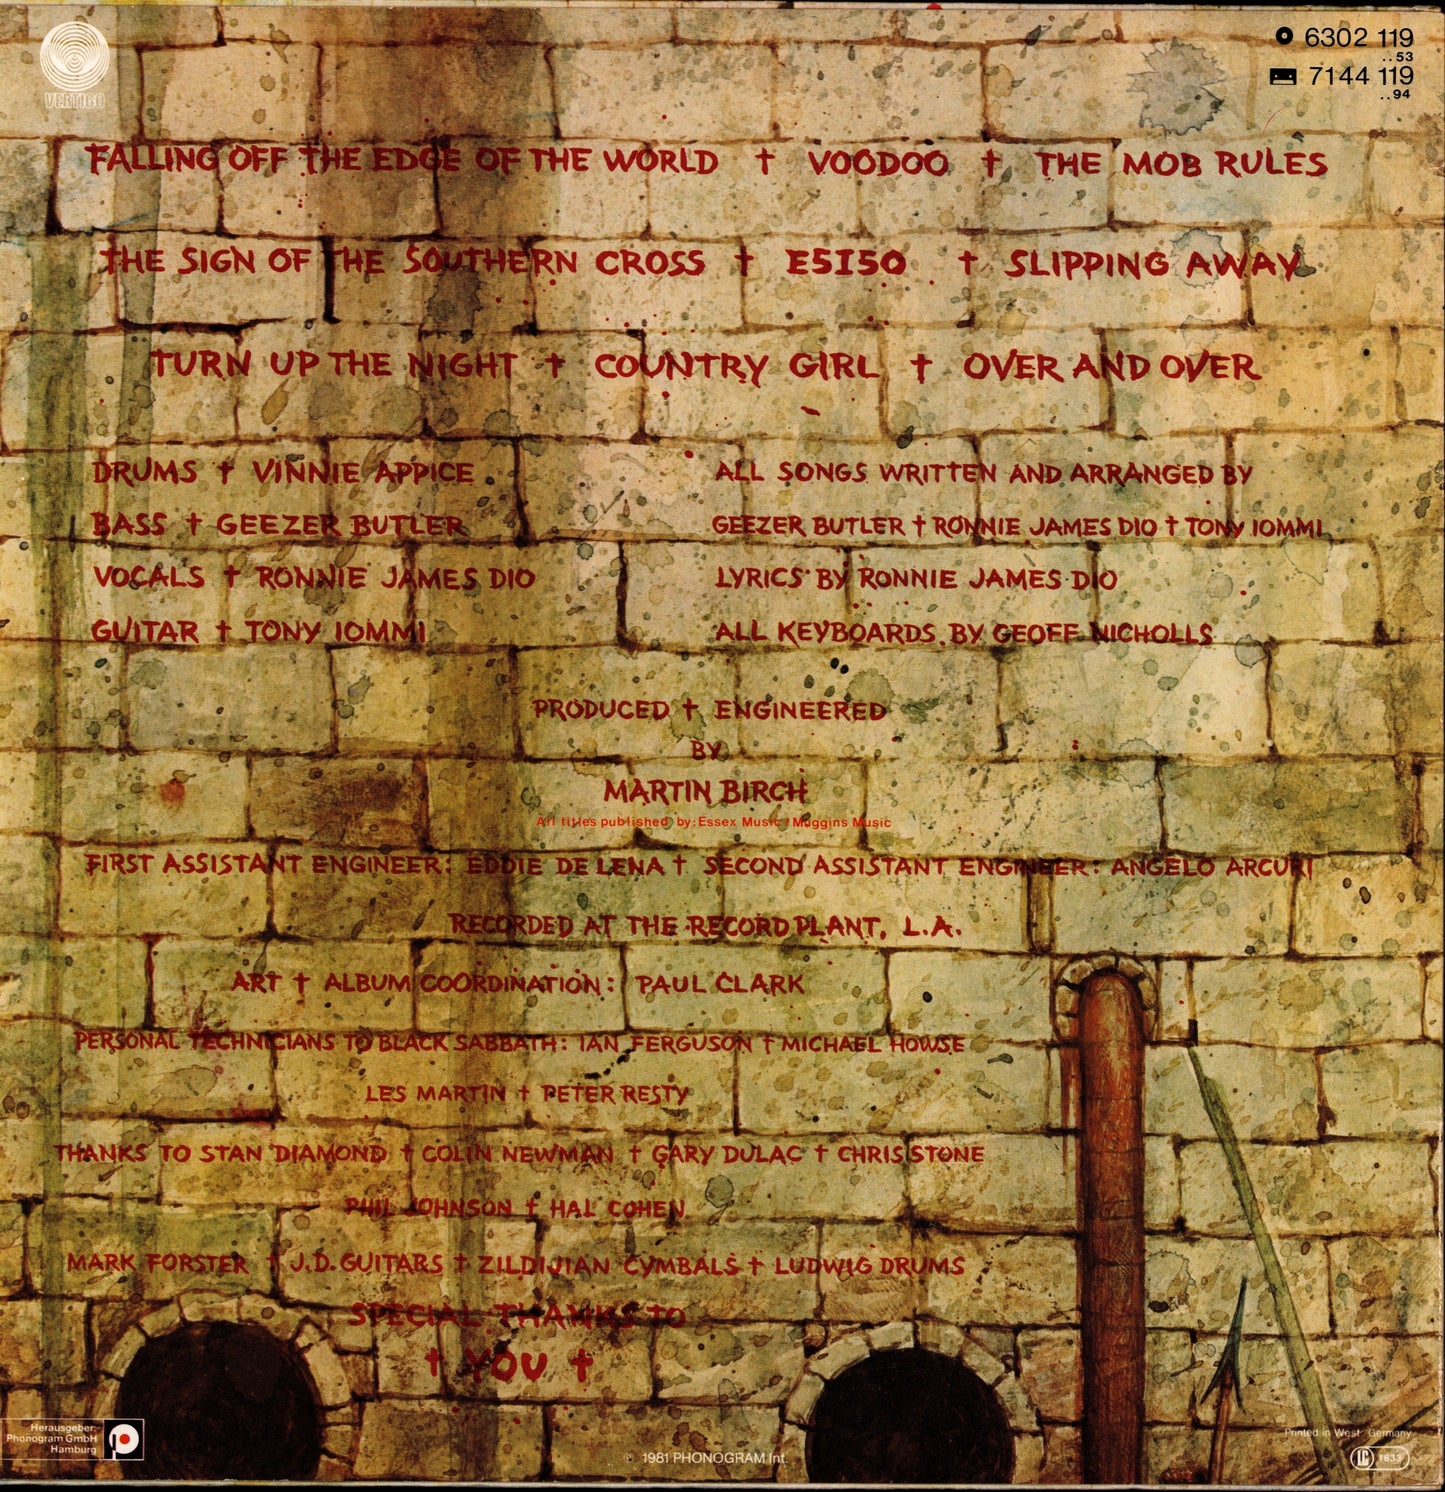 VERTIGO
6302 119
..53
7144 119
..94
FALLING OFF THE EDGE OF THE WORLD † VOODOO † THE MOB RULES
THE SIGN OF THE SOUTHERN CROSS † E5I50 † SLIPPING AWAY
TURN UP THE NIGHT † COUNTRY GIRL † OVER AND OVER
DRUMS † VINNIE APPICE
BASS † GEEZER BUTLER
VOCALS † RONNIE JAMES DIO
GUITAR † TONY IOMMI
ALL SONGS WRITTEN AND ARRANGED BY
GEEZER BUTLER † RONNIE JAMES DIO † TONY IOMMI
LYRICS BY RONNIE JAMES DIO
ALL KEYBOARDS BY GEOFF NICHOLLS
PRODUCED † ENGINEERED
BY
MARTIN BIRCH
All titles published by: Essex Music / Muggins Music
FIRST ASSISTANT ENGINEER: EDDIE DE LENA † SECOND ASSISTANT ENGINEER: ANGELO ARCURI
RECORDED AT THE RECORD PLANT, L.A.
ART † ALBUM COORDINATION: PAUL CLARK
PERSONAL TECHNICIANS TO BLACK SABBATH: IAN FERGUSON † MICHAEL HOWSE
LES MARTIN † PETER RESTY
THANKS TO STAN DIAMOND † COLIN NEWMAN † GARY DULAC † CHRIS STONE
PHIL JOHNSON † HAL COHEN
MARK FORSTER † J.D. GUITARS † ZILDIJIAN CYMBALS † LUDWIG DRUMS
SPECIAL THANKS TO
† YOU †
Herausgeber:
Phonogram GmbH
Hamburg
℗ 1981 PHONOGRAM Int.
Printed in West Germany
LC 1633